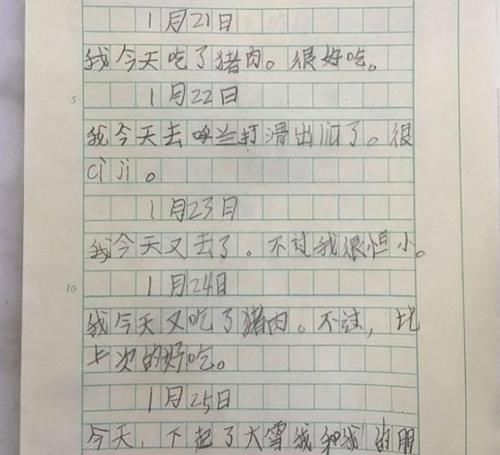 1月21日
我今天吃了猪肉。很好吃。
5
1月22日
我今天去呼兰打滑出们了。很
cìjī。
1月23日
我今天又去了。不过我很恒小。
10
1月24日
我今天又吃了猪肉。不过,比
上次的好吃。
1月25日
今天,下起了大雪我和我的朋